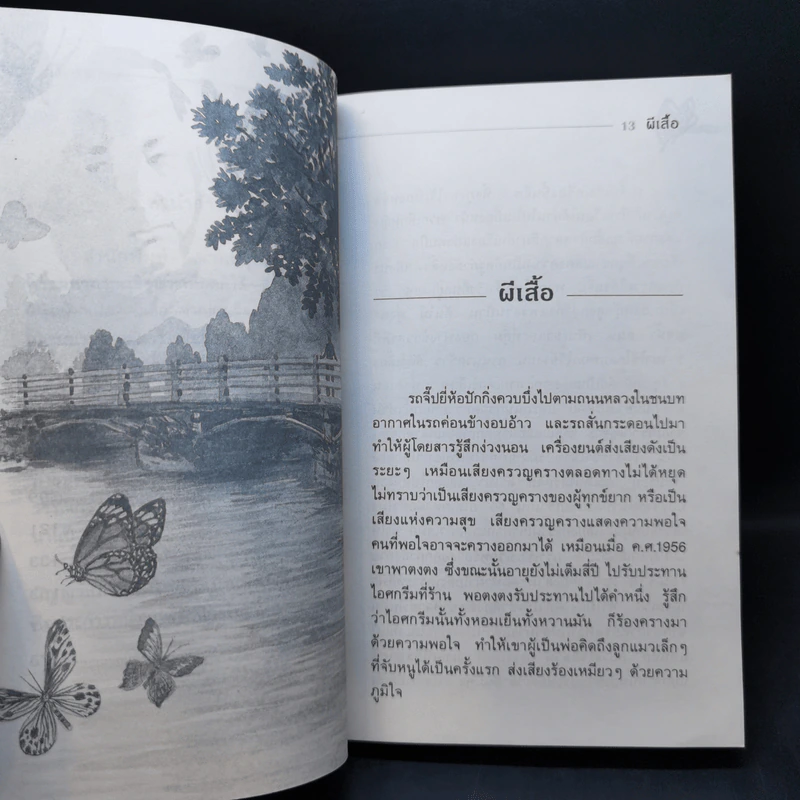 13 ผีเสื้อ
ผีเสื้อ
รถจี๊ปยี่ห้อปักกิ่งควบปึ่งไปตามถนนหลวงในชนบท
อากาศในรถค่อนข้างอบอ้าว และรถสั่นกระดอนไปมา
ทำให้ผู้โดยสารรู้สึกง่วงนอน เครื่องยนต์ส่งเสียงดังเป็น
ระยะๆ เหมือนเสียงครวญครางตลอดทางไม่ได้หยุด
ไม่ทราบว่าเป็นเสียงครวญครางของผู้ทุกข์ยาก หรือเป็น
เสียงแห่งความสุข เสียงครวญครางแสดงความพอใจ
คนที่พอใจอาจจะครางออกมาได้ เหมือนเมื่อ ค.ศ.1956
เขาพาตงตง ซึ่งขณะนั้นอายุยังไม่เต็มสี่ปี ไปรับประทาน
ไอศกรีมที่ร้าน พอตงตงรับประทานไปได้คำหนึ่ง รู้สึก
ว่าไอศกรีมนั้นทั้งหอมเย็นทั้งหวานมัน ก็ร้องครางมา
ด้วยความพอใจ ทำให้เขาผู้เป็นพ่อคิดถึงลูกแมวเล็กๆ
ที่จับหนูได้เป็นครั้งแรก ส่งเสียงร้องเหมียวๆ ด้วยความ
ภูมิใจ